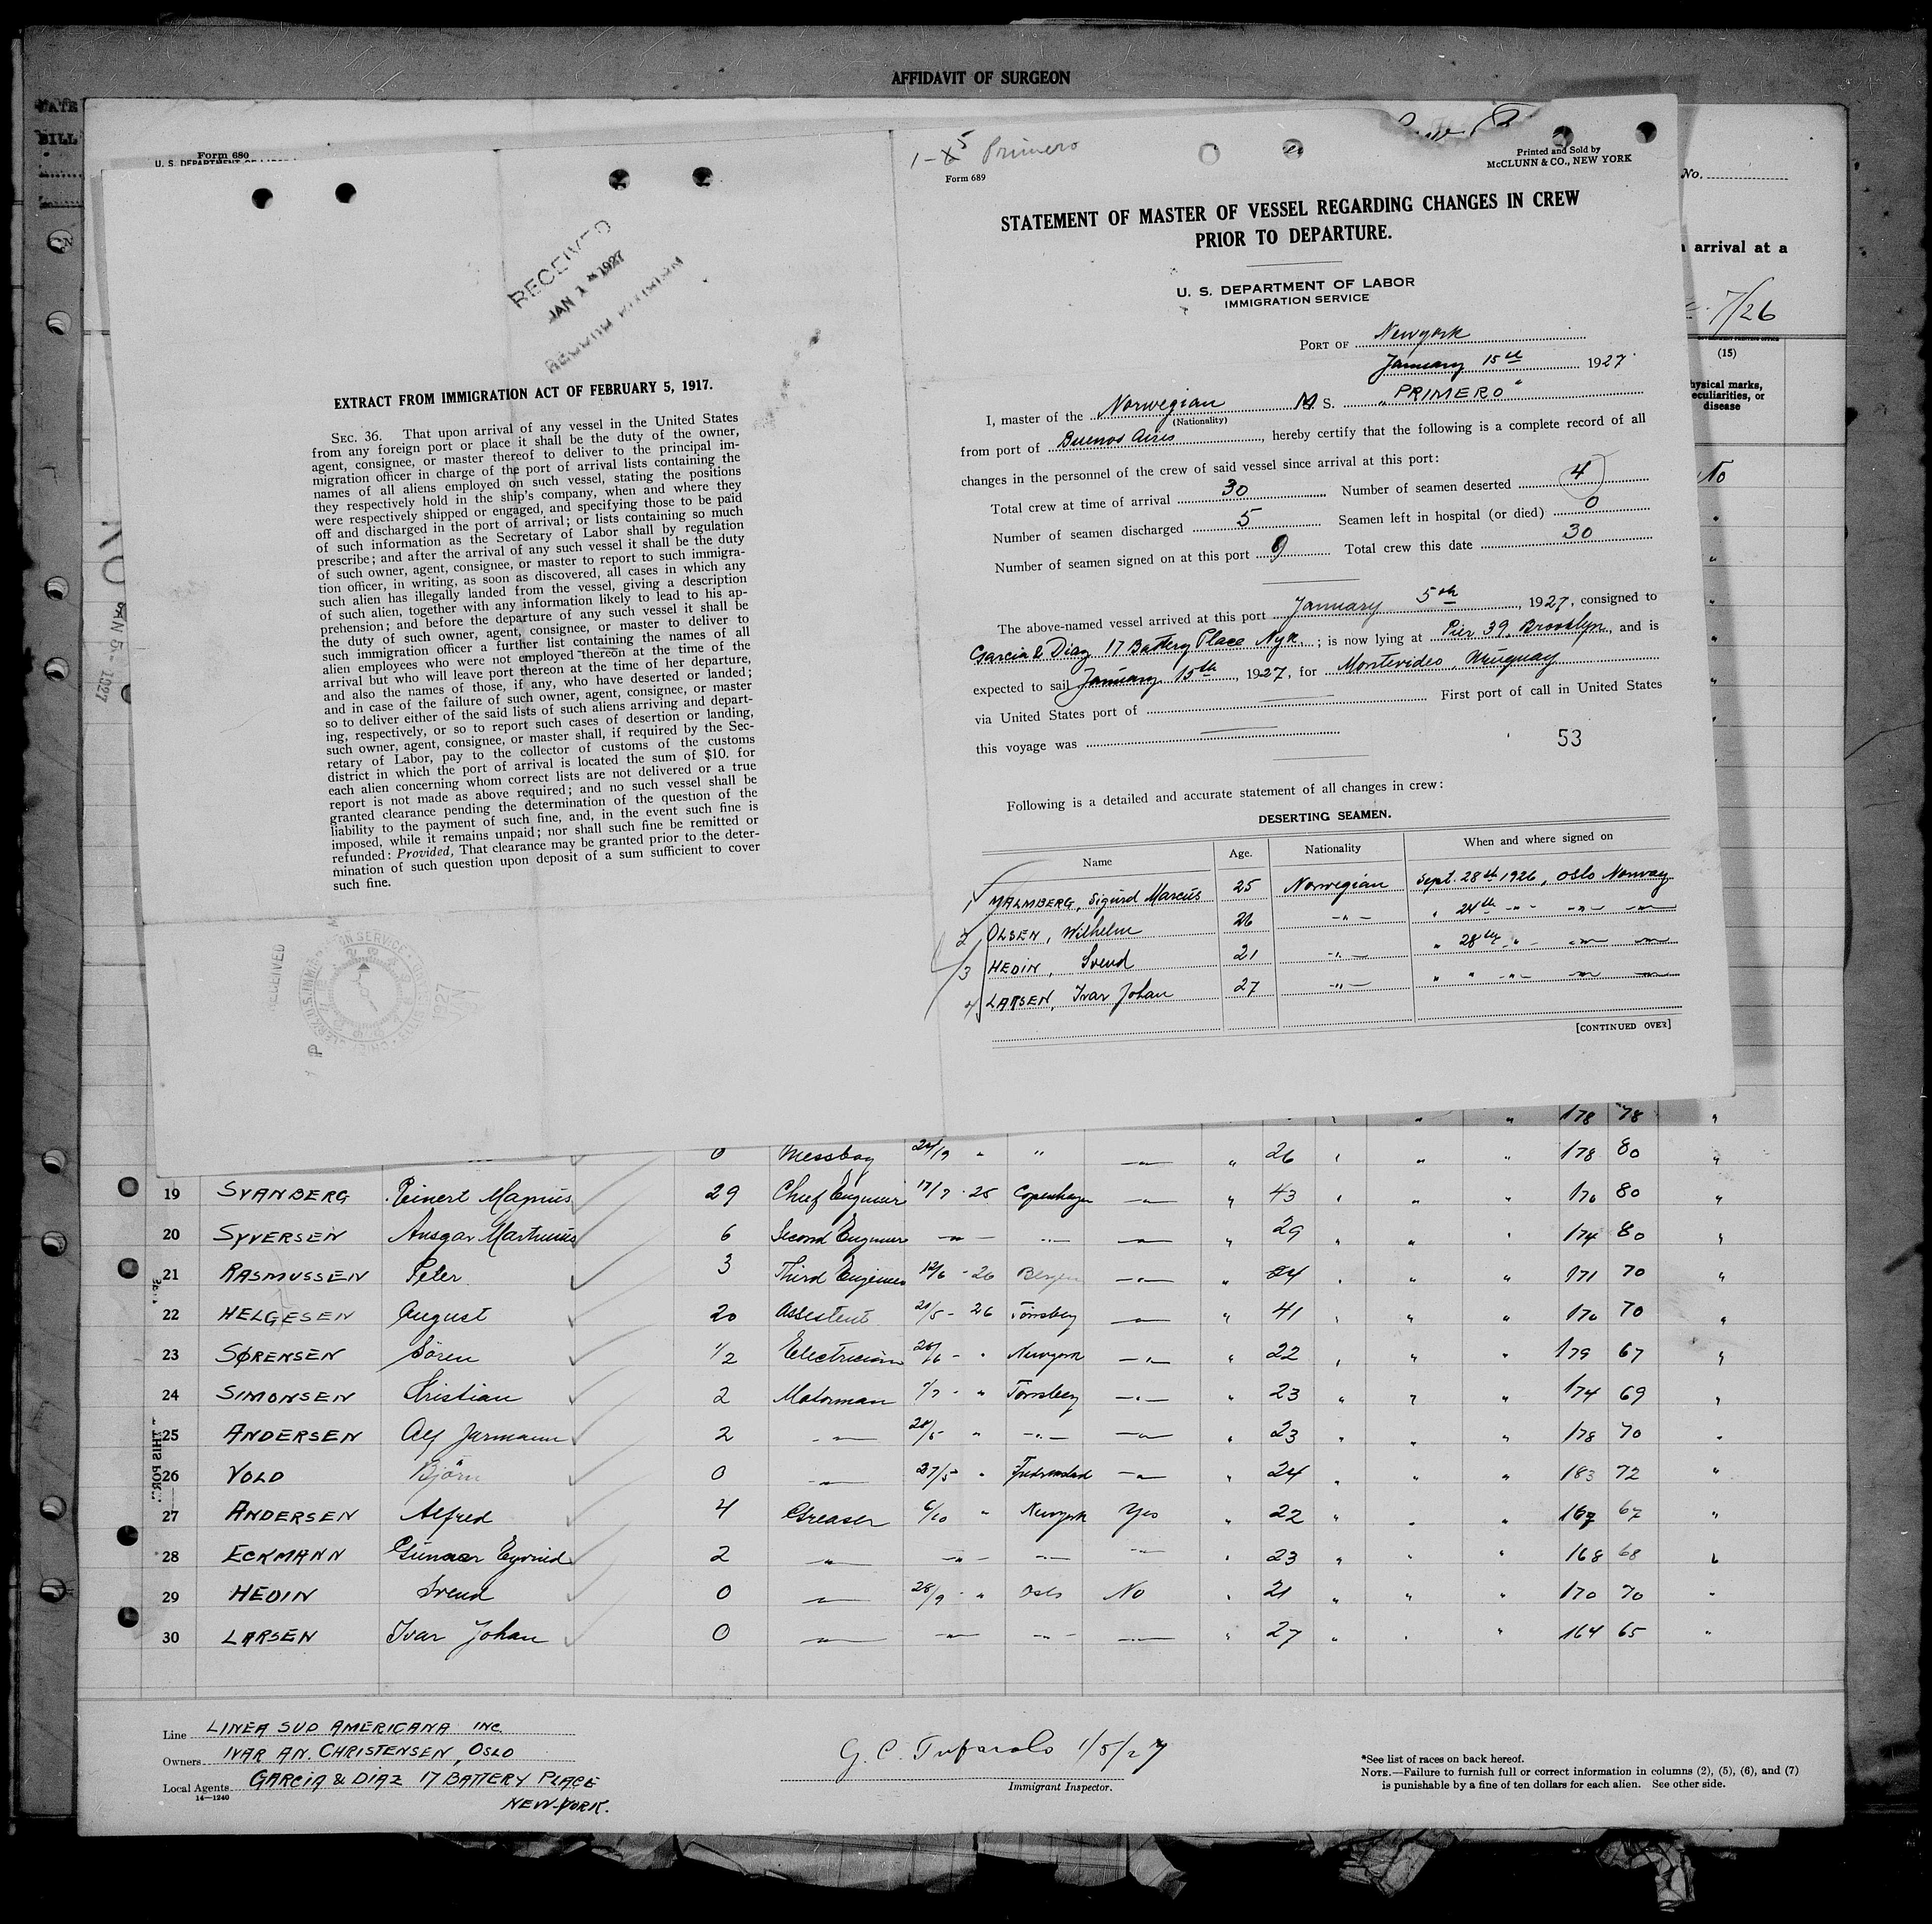 AFFIDAVIT OF SURGEON
BILL
Form 680
No.
arrival at a
7/26
(15)
hysical marks,
eculiarities, or
disease
No
RECEIVED
JAN 1 1927
RECORD DIVISION
EXTRACT FROM IMMIGRATION ACT OF FEBRUARY 5, 1917.
SEC. 36. That upon arrival of any vessel in the United States
from any foreign port or place it shall be the duty of the owner,
agent, consignee, or master thereof to deliver to the principal im-
migration officer in charge of the port of arrival lists containing the
names of all aliens employed on such vessel, stating the positions
they respectively hold in the ship's company, when and where they
were respectively shipped or engaged, and specifying those to be paid
off and discharged in the port of arrival; or lists containing so much
of such information as the Secretary of Labor shall by regulation
prescribe; and after the arrival of any such vessel it shall be the duty
of such owner, agent, consignee, or master to report to such immigra-
tion officer, in writing, as soon as discovered, all cases in which any
such alien has illegally landed from the vessel, giving a description
of such alien, together with any information likely to lead to his ap-
prehension; and before the departure of any such vessel it shall be
the duty of such owner, agent, consignee, or master to deliver to
such immigration officer a further list containing the names of all
alien employees who were not employed thereon at the time of the
arrival but who will leave port thereon at the time of her departure,
and also the names of those, if any, who have deserted or landed;
and in case of the failure of such owner, agent, consignee, or master
so to deliver either of the said lists of such aliens arriving and depart-
ing, respectively, or so to report such cases of desertion or landing,
such owner, agent, consignee, or master shall, if required by the Sec-
retary of Labor, pay to the collector of customs of the customs
district in which the port of arrival is located the sum of $10. for
each alien concerning whom correct lists are not delivered or a true
report is not made as above required; and no such vessel shall be
granted clearance pending the determination of the question of the
liability to the payment of such fine, and, in the event such fine is
imposed, while it remains unpaid; nor shall such fine be remitted or
refunded: Provided, That clearance may be granted prior to the deter-
mination of such question upon deposit of a sum sufficient to cover
such fine.
RECEIVED
JAN 5 - 1927
1-5 Primero
Form 689
Printed and Sold by
McCLUNN & CO., NEW YORK
STATEMENT OF MASTER OF VESSEL REGARDING CHANGES IN CREW
PRIOR TO DEPARTURE.
U. S. DEPARTMENT OF LABOR
IMMIGRATION SERVICE
PORT OF Newyork
January 15th 1927
I, master of the Norwegian M. S. "PRIMERO"
(Nationality)
from port of Buenos Aires, hereby certify that the following is a complete record of all
changes in the personnel of the crew of said vessel since arrival at this port:
Total crew at time of arrival 30 Number of seamen deserted 4
Number of seamen discharged 5 Seamen left in hospital (or died) 0
Number of seamen signed on at this port 9 Total crew this date 30
The above-named vessel arrived at this port January 5th, 1927, consigned to
Garcia & Diaz 17 Battery Place Nyk.; is now lying at Pier 39, Brooklyn, and is
expected to sail January 15th, 1927, for Montevideo, Uruguay
via United States port of First port of call in United States
this voyage was
53
Following is a detailed and accurate statement of all changes in crew:
DESERTING SEAMEN.
Name Age. Nationality When and where signed on
1 MALMBERG, Sigurd Marcus 25 Norwegian Sept. 28th 1926, Oslo Norway
2 OLSEN, Wilhelm 26 -"- " 24th -"- -"- -"-
3 HEDIN, Svend 21 -"- " 28th -"- -"- -"-
4 LARSEN, Ivar Johan 27 -"- " " -"- -"- -"-
[CONTINUED OVER]
178 78 "
0 Messboy 24/9 " " -"- " 26 " " " 178 80 "
19 SVANBERG Reinert Magnus 29 Chief Engineer 17/7 - 25 Copenhagen -"- " 43 " " " 170 80 "
20 SYVERSEN Ansgar Martinius 6 Second Engineer -"- -"- -"- " 29 " " " 174 80 "
21 RASMUSSEN Peter 3 Third Engineer 12/6 - 26 Bergen -"- " 24 " " " 171 70 "
22 HELGESEN August 20 Assistent 20/5 - 26 Tönsberg -"- " 41 " " " 170 70 "
23 SØRENSEN Sören 1/2 Electrician 26/6 - " Newyork -"- " 22 " " " 179 67 "
24 SIMONSEN Kristian 2 Motorman 1/7 - " Tönsberg -"- " 23 " " " 174 69 "
25 ANDERSEN Alf Jarmann 2 -"- 28/5 " -"- -"- " 23 " " " 178 70 "
26 VOLD Björn 0 -"- 27/5 " Fredrikstad -"- " 24 " " " 183 72 "
27 ANDERSEN Alfred 4 Greaser 6/10 " Newyork Yes " 22 " " " 167 67 "
28 ECKMANN Gunnar Eyvind 2 " -"- -"- -"- " 23 " " " 168 68 "
29 HEDIN Svend 0 -"- 28/9 - " Oslo No " 21 " " " 170 70 "
30 LARSEN Ivar Johan 0 -"- -"- -"- -"- " 27 " " " 164 65 "
Line LINEA SUD AMERICANA INC.
Owners IVAR AN. CHRISTENSEN, OSLO
Local Agents GARCIA & DIAZ 17 BATTERY PLACE
14—1240
NEW-YORK.
1/5/27
Immigrant Inspector.
*See list of races on back hereof.
NOTE.—Failure to furnish full or correct information in columns (2), (5), (6), and (7)
is punishable by a fine of ten dollars for each alien. See other side.